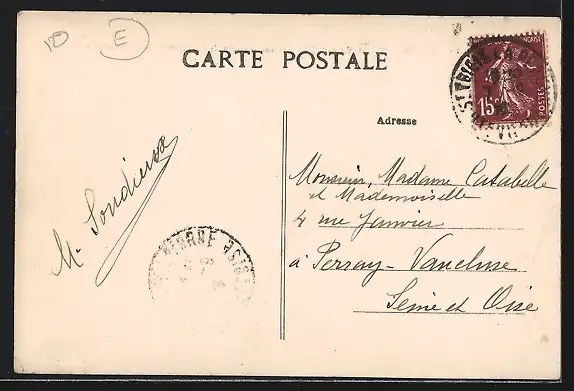 10 E
CARTE POSTALE
Adresse
15
POSTES
M. Sondieras
Monsieur, Madame Catabelle
et Mademoiselle
4 rue Janvier
à Perray-Vaucluse
Seine et Oise